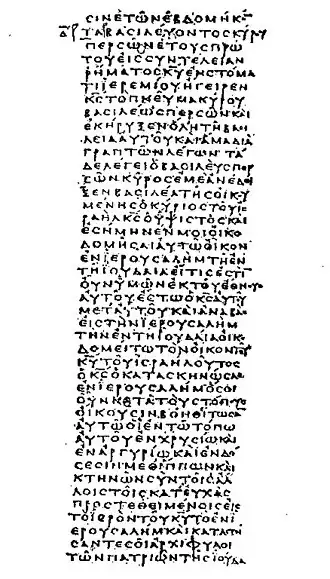 ϹΙΝΕΤΩΝΕΒΔΟΜΗΚΟ̅
ΤΑΒΑϹΙΛΕΥΟΝΤΟϹΚΥΡΟΥ
ΠΕΡϹΩΝΕΤΟΥϹΠΡΩ
ΤΟΥΕΙϹϹΥΝΤΕΛΕΙΑΝ
ΡΗΜΑΤΟϹΚ̅Υ̅ΕΝϹΤΟΜΑ
ΤΙΙΕΡΕΜΙΟΥΗΓΕΙΡΕΝ
Κ̅Ϲ̅ΤΟΠΝΕΥΜΑΚΥΡΟΥ
ΒΑϹΙΛΕΩϹΠΕΡϹΩΝΚΑΙ
ΕΚΗΡΥΞΕΝΟΛΗΤΗΒΑϹΙ
ΛΕΙΑΑΥΤΟΥΚΑΙΑΜΑΔΙΑ
ΓΡΑΠΤΩΝΛΕΓΩΝ ΤΑ
ΔΕΛΕΓΕΙΟΒΑϹΙΛΕΥϹΠΕΡ
ϹΩΝΚΥΡΟϹΕΜΕΑΝΕΔΕΙ
ΞΕΝΒΑϹΙΛΕΑΤΗϹΟΙΚΟΥ
ΜΕΝΗϹΟΚΥΡΙΟϹΤΟΥΙϹ
ΡΑΗΛΚ̅Ϲ̅ΟΥΨΙϹΤΟϹΚΑΙ
ΕϹΗΜΗΝΕΝΜΟΙΟΙΚΟ
ΔΟΜΗϹΑΙΑΥΤΩΟΙΚΟΝ
ΕΝΙΕΡΟΥϹΑΛΗΜΤΗΕΝ
ΤΗΙΟΥΔΑΙΑΕΙΤΙϹΕϹΤΙ
ΟΥΝΥΜΩΝΕΚΤΟΥΕΘΝΟΥϹ
ΑΥΤΟΥΕϹΤΩΟΚ̅Ϲ̅ΑΥΤΟΥ
ΜΕΤΑΥΤΟΥΚΑΙΑΝΑΒΑϹ
ΕΙϹΤΗΝΙΕΡΟΥϹΑΛΗΜ
ΤΗΝΕΝΤΗΙΟΥΔΑΙΑΟΙΚΟ
ΔΟΜΕΙΤΩΤΟΝΟΙΚΟΝΤΟΥ
Κ̅Υ̅ΤΟΥΙϹΡΑΗΛΟΥΤΟϹ
ΟΚ̅Ϲ̅ΟΚΑΤΑϹΚΗΝΩϹΑϹ
ΕΝΙΕΡΟΥϹΑΛΗΜΟϹΟΙ
ΟΥΝΚΑΤΑΤΟΥϹΤΟΠΟΥϹ
ΟΙΚΟΥϹΙΝΒΟΗΘΙΤΩϹΑΝ
ΑΥΤΩΟΙΕΝΤΩΤΟΠΩ
ΑΥΤΟΥΕΝΧΡΥϹΙΩΚΑΙ
ΕΝΑΡΓΥΡΙΩΚΑΙΕΝΔΟ
ϹΕϹΙΝΜΕΘΙΠΠΩΝΚΑΙ
ΚΤΗΝΩΝϹΥΝΤΟΙϹΑΛ
ΛΟΙϹΤΟΙϹΚΑΤΕΥΧΑϹ
ΠΡΟϹΤΕΘΕΙΜΕΝΟΙϹΕΙϹ
ΤΟΙΕΡΟΝΤΟΥΚ̅Υ̅ΤΟΕΝΙ
ΕΡΟΥϹΑΛΗΜΚΑΙΚΑΤΑϹΤΗ
ϹΑΝΤΕϹΟΙΑΡΧΙΦΥΛΟΙ
ΤΩΝΠΑΤΡΙΩΝΤΗϹΙΟΥΔΑ